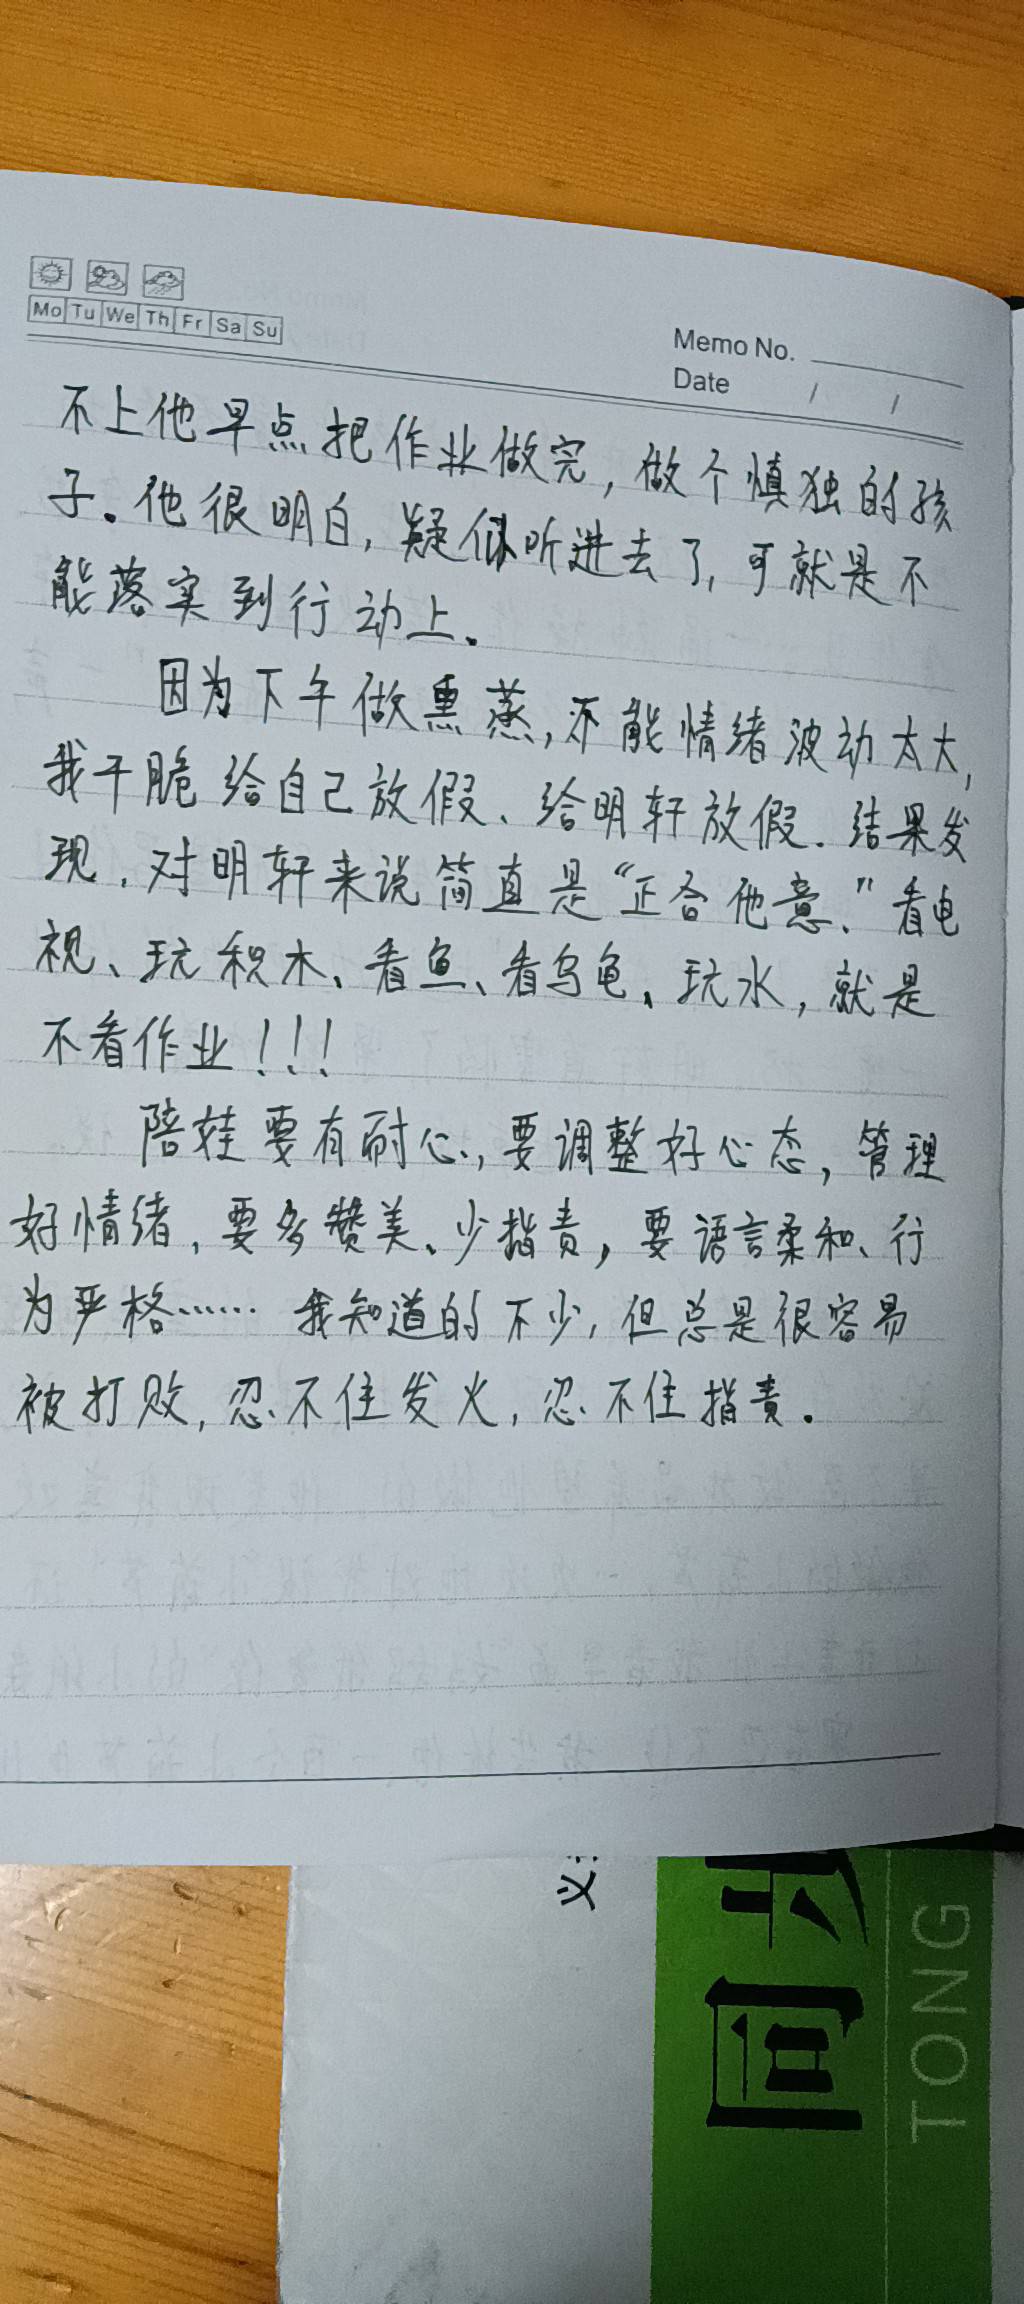 Mo Tu We Th Fr Sa Su
Memo No.
Date / /
不上他早点把作业做完，做个慎独的孩
子。他很明白，疑似听进去了，可就是不
能落实到行动上。
因为下午做熏蒸，不能情绪波动太大，
我干脆给自己放假、给明轩放假．结果发
现，对明轩来说简直是“正合他意．”看电
视、玩积木、看鱼、看乌龟、玩水，就是
不看作业！！！
陪娃要有耐心，要调整好心态，管理
好情绪，要多赞美、少指责，要语言柔和、行
为严格…… 我知道的不少，但总是很容易
被打败，忍不住发火，忍不住指责。
同步
TONG